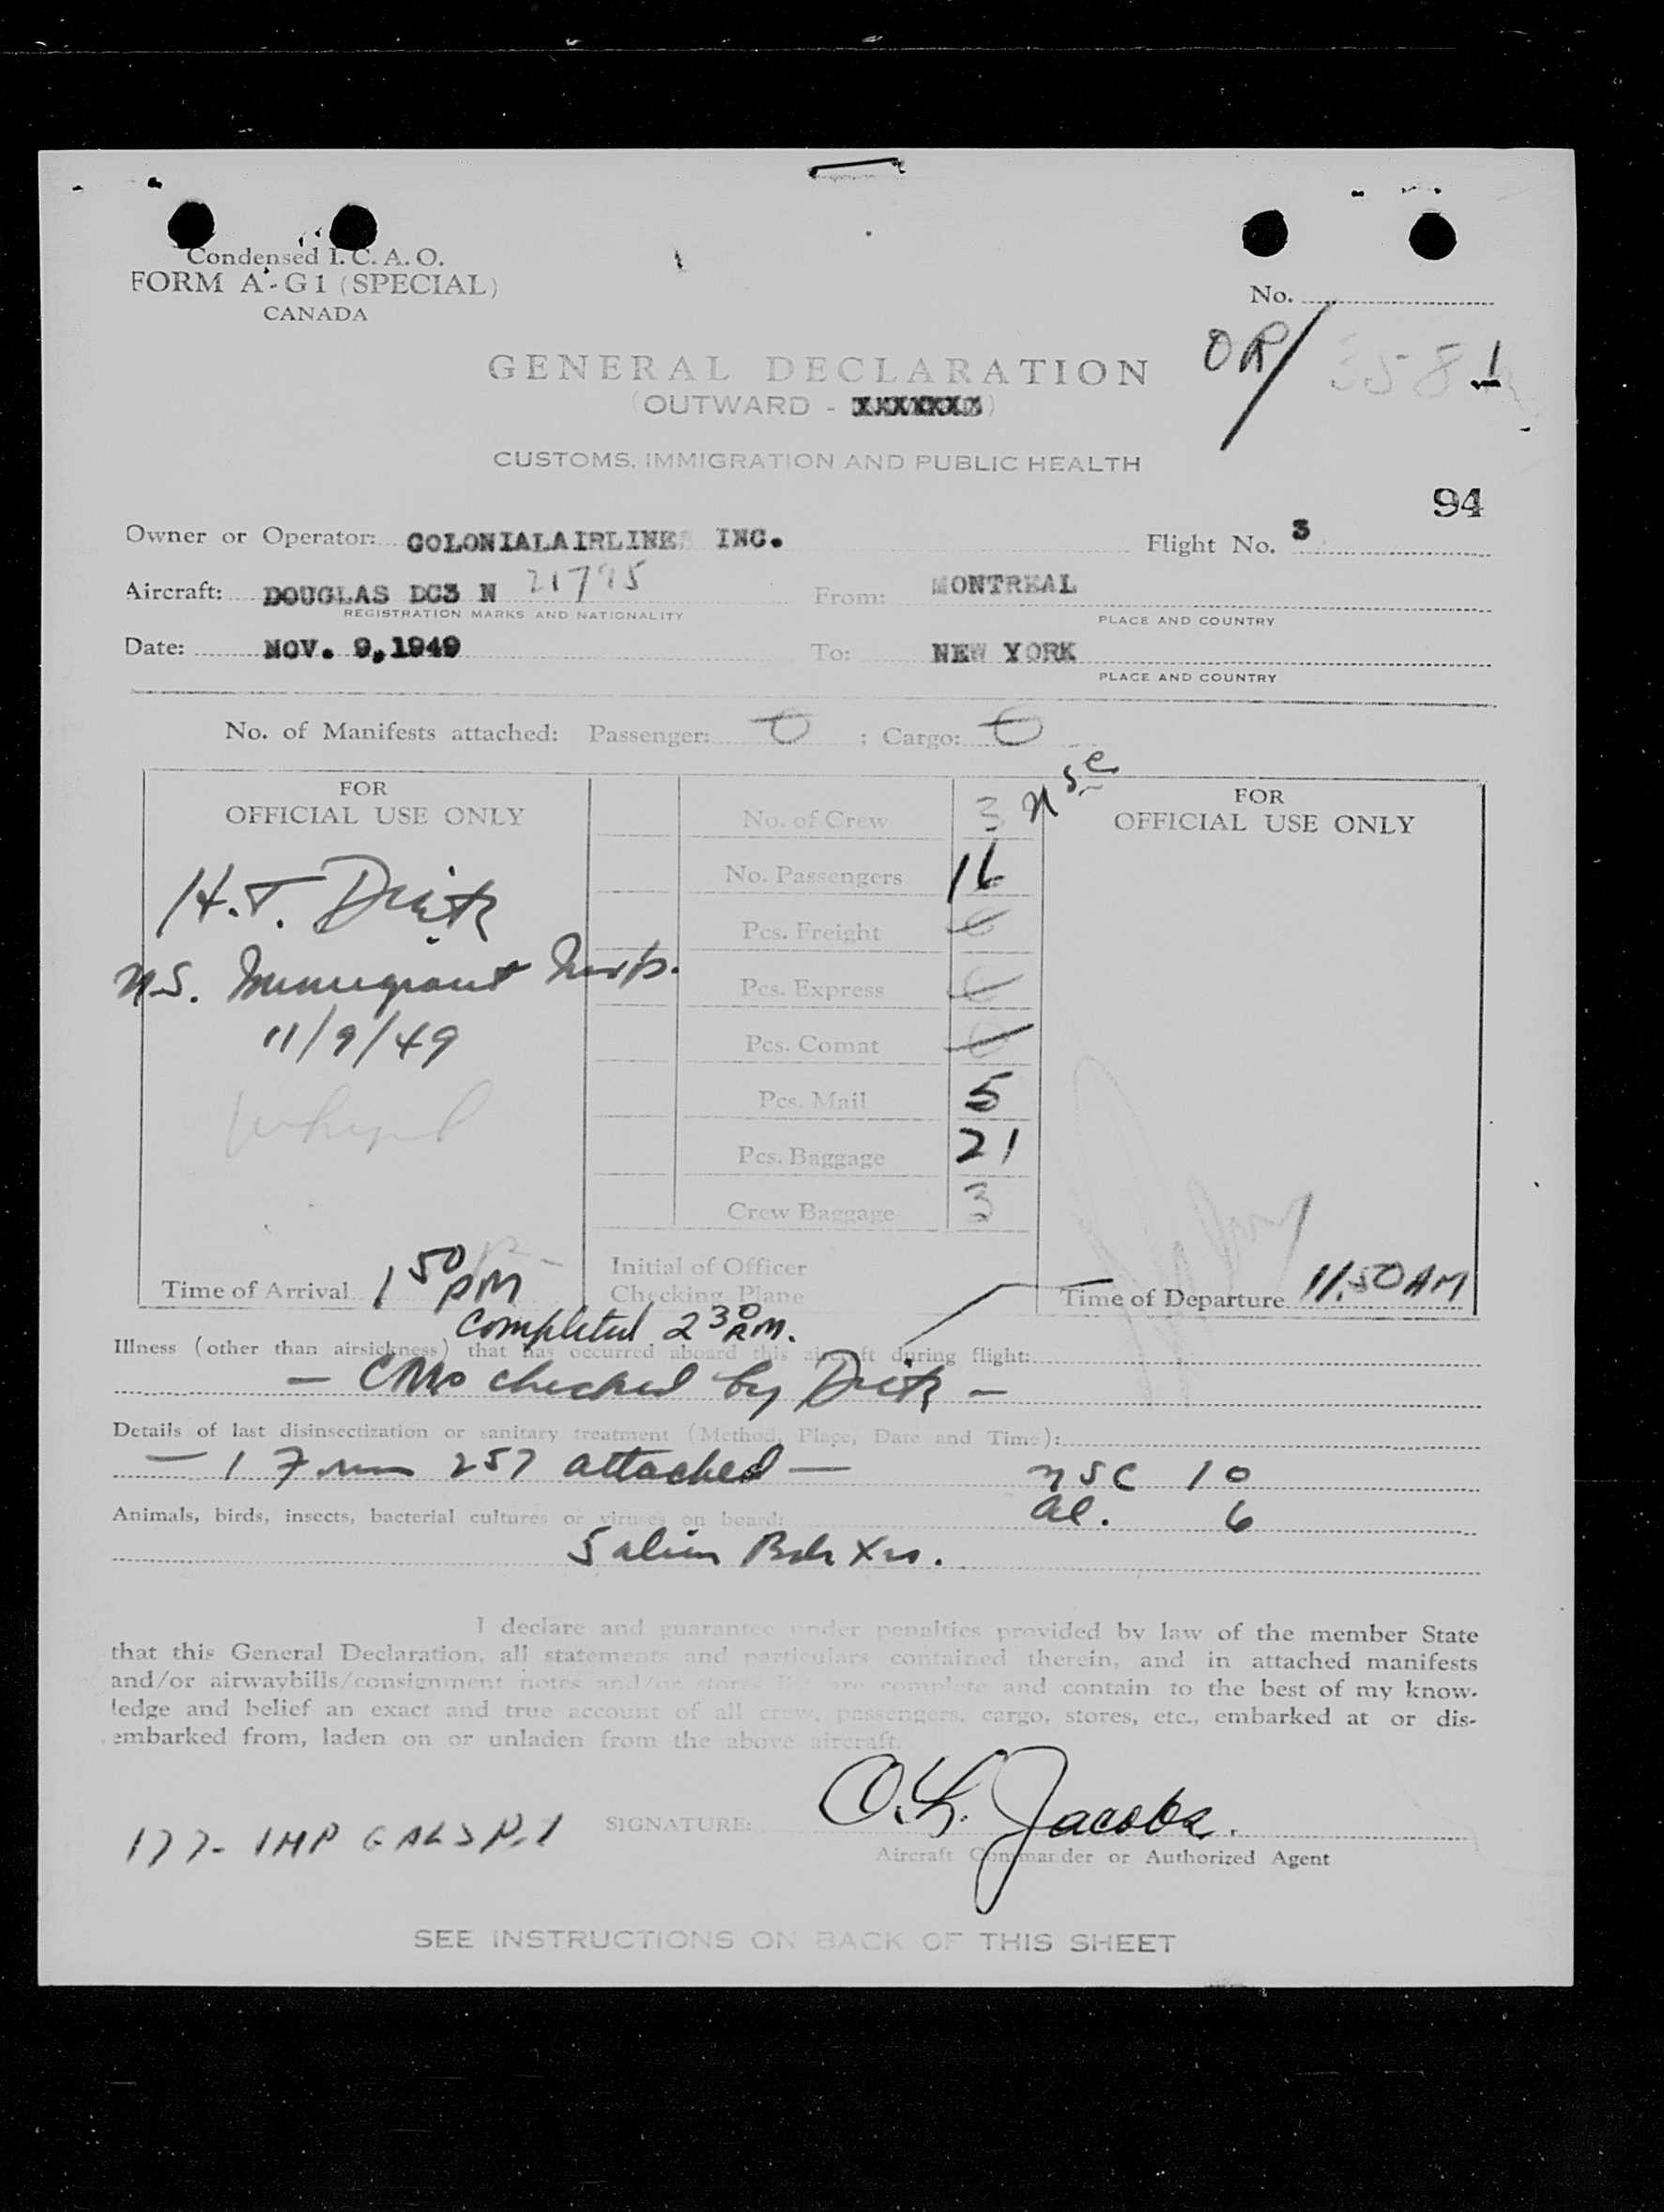 Condensed I. C. A. O.
FORM A-G1 (SPECIAL)
CANADA
No.
OR/ 3581
GENERAL DECLARATION
(OUTWARD - XXXXXXX)
CUSTOMS, IMMIGRATION AND PUBLIC HEALTH
94
Owner or Operator: COLONIALAIRLINES INC. Flight No. 3
Aircraft: DOUGLAS DC3 N 21795 From: MONTREAL
REGISTRATION MARKS AND NATIONALITY PLACE AND COUNTRY
Date: NOV. 9,1949 To: NEW YORK
PLACE AND COUNTRY
No. of Manifests attached: Passenger: 0 ; Cargo: 0
FOR
OFFICIAL USE ONLY
H.T. Dietz
U.S. Immigrant Insp.
11/9/49
Time of Arrival 1 50 PM
No. of Crew 3 usc
No. Passengers 16
Pcs. Freight 0
Pcs. Express 0
Pcs. Comat 0
Pcs. Mail 5
Pcs. Baggage 21
Crew Baggage 3
Initial of Officer
Checking Plane
FOR
OFFICIAL USE ONLY
Time of Departure 11.50 AM
Completed 2 30 P.M.
Illness (other than airsickness) that has occurred aboard this aircraft during flight:
— checked by Dietz —
Details of last disinsectization or sanitary treatment (Method, Place, Date and Time):
— 1 Form 257 attached — USC 10
Animals, birds, insects, bacterial cultures or viruses on board: al. 6
I declare and guarantee under penalties provided by law of the member State
that this General Declaration, all statements and particulars contained therein, and in attached manifests
and/or airwaybills/consignment notes and/or stores list are complete and contain to the best of my know-
ledge and belief an exact and true account of all crew, passengers, cargo, stores, etc., embarked at or dis-
embarked from, laden on or unladen from the above aircraft.
177- IMP GALS
SIGNATURE: O.L. Jacobs.
Aircraft Commander or Authorized Agent
SEE INSTRUCTIONS ON BACK OF THIS SHEET